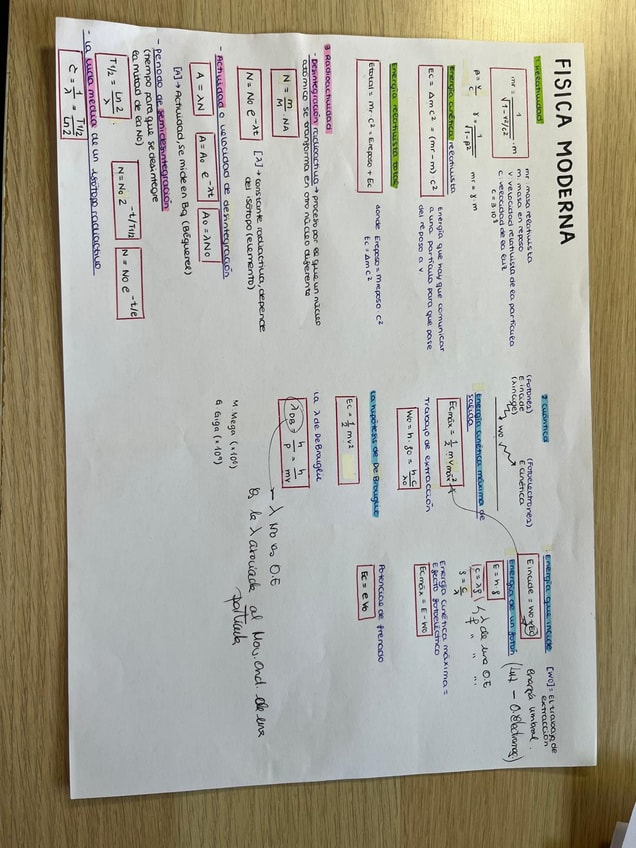 FISICA MODERNA
1. Relatividad
mr = 1/√(1-v²/c²) · m
mr: masa relativista
m: masa en reposo
v: velocidad relativista de la partícula
c: velocidad de la luz
c = 3·10⁸
β = v/c  γ = 1/√(1-β²)  mr = γ m
Energía cinética relativista
Ec = Δm c² = (mr - m) c²
Energía que hay que comunicar
a una partícula para que pase
del reposo a v
Energía relativista total
Etotal = mr · c² = Ereposo + Ec
donde Ereposo = mreposo c²
Ec = Δm c²
3. Radioactividad
- Desintegración radioactiva → proceso por el que un núcleo
atómico se transforma en otro núcleo diferente
N = m/M · NA
N = No e^-λt
[λ] → constante radioactiva, depende
del isótopo (elemento)
- Actividad o velocidad de desintegración
A = λN
A = Ao e^-λt
Ao = λNo
[A] → Actividad, se mide en Bq (Bequerel)
- Periodo de semidesintegración
(tiempo para que se desintegre
la mitad de la No)
T1/2 = Ln2/λ
N = No 2^-t/T1/2
N = No e^-t/τ
- La vida media de un isótopo radioactivo
τ = 1/λ = T1/2/Ln2
2. Cuántica
(Fotones)
E incide
(λincide)
Wo
(Fotoelectrones)
E cinética
Energía cinética máxima de
salida
Ecmáx = ½ m vmáx²
Trabajo de extracción
Wo = h · fo = h c/λo
La hipótesis de De Broglie
Ec = ½ mv²
La λ de De Broglie
λDB = h/p = h/mv
M. Mega (×10⁶)
G Giga (×10⁹)
Energía que incide
Eincide = Wo + Ec
[Wo] = El trabajo de
extracción
energía umbral.
Energía de un fotón
(luz - O. Electromag)
E = h · f
c = λf
f = c/λ
λ de una O.E
f " " "
Energía cinética máxima =
Efecto fotoeléctrico
Ecmáx = E - Wo
Potencial de frenado
Ec = e Vo
λ no es O.E
Es la λ asociada al Mov. Ond. de una
partícula